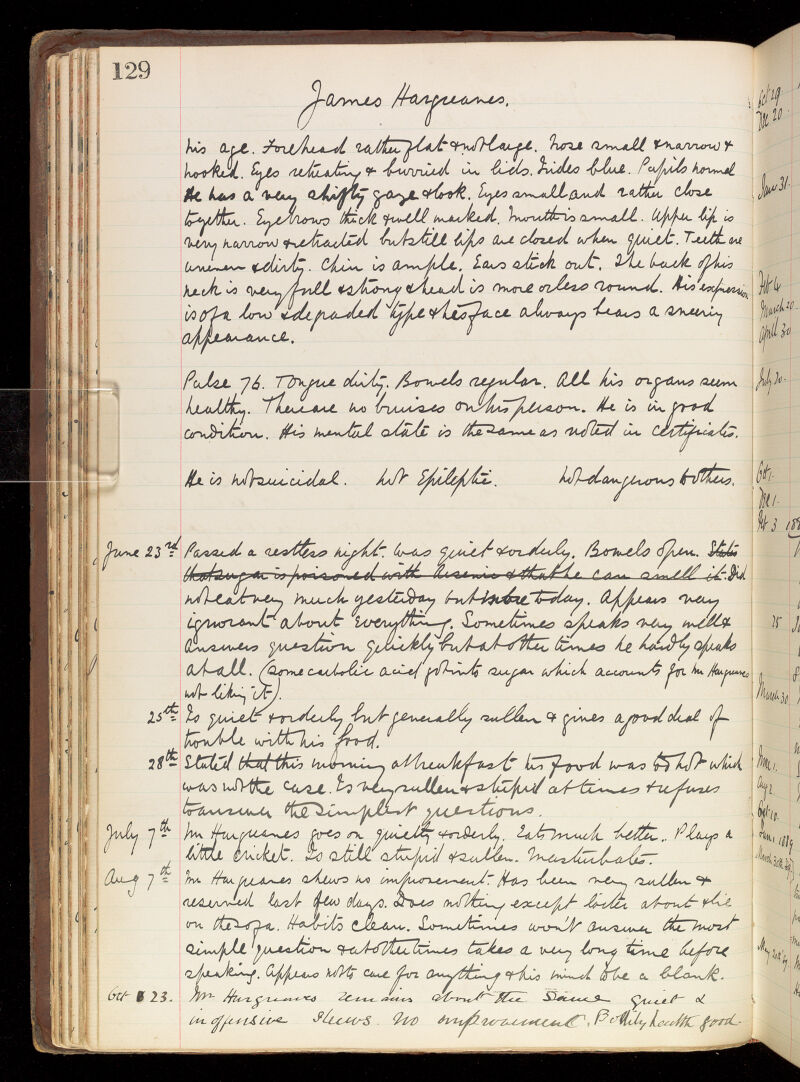 129
James Hargreaves.
his age. Forehead rather flat & not large. Nose small & narrow &
hooked. Eyes retreating & burried in lids. Irides blue. Pupils normal
He has a very shifty gaze & look. Eyes small and rather close
together. Eyebrows thick & well marked. Mouth is small. Upper lip is
very narrow & retracted but still lips are closed when quiet. Teeth are
uneven & dirty. Chin is ample. Ears stick out. The back of his
neck is very full & strong & head is more or less round. His expression
is of a low & degraded type & his face always bears a sneering
appearance.
Pulse 76. Tongue dirty. Bowels regular. All his organs seem
healthy. There are no bruises on his person. He is in good
condition. His mental state is the same as noted in certificates.
He is not suicidal. Not Epileptic. Not dangerous to others.
June 23rd Passed a restless night. Was quiet & orderly. Bowels open. States
that sugar is poisoned with Arsenic & that he can smell it. Did
not eat very much yesterday but more today. Appears very
ignorant about everything. Sometimes speaks very well &
answers question quickly but at other times he hardly speaks
at all. (Some carbolic acid got into sugar which accounts for Mr Hargreaves
not liking it).
25th Is quiet & orderly but generally sullen & gives a good deal of
trouble with his food.
28th Stated that this morning at breakfast his food was too hot which
was not the case. Is very sullen & stupid at times & refuses
to answer the simplest questions.
July 7th Mr Hargreaves goes on quietly & orderly. Eats much better. Plays a
little cricket. Is still stupid & sullen. Masturbates.
Aug 7th Mr Hargreaves shews no improvement. Has been very sullen &
reserved last few days. Does nothing except loiter about & lie
on the sofa. Habits clean. Sometimes won't answer the most
simple question & at other times takes a very long time before
speaking. Appears not to care for anything & his mind to be a blank.
Oct 23. Mr Hargreaves remains about the same quiet &
inoffensive shews no improvement. Bodily health good.
Oct 29
Dec 20
Jan 31
Feb 4
March 20
April 30
July 20
Oct 1
Dec 1
Feb 3
25
March 30
June 1.
Aug 2
Oct 10
Jan 1889